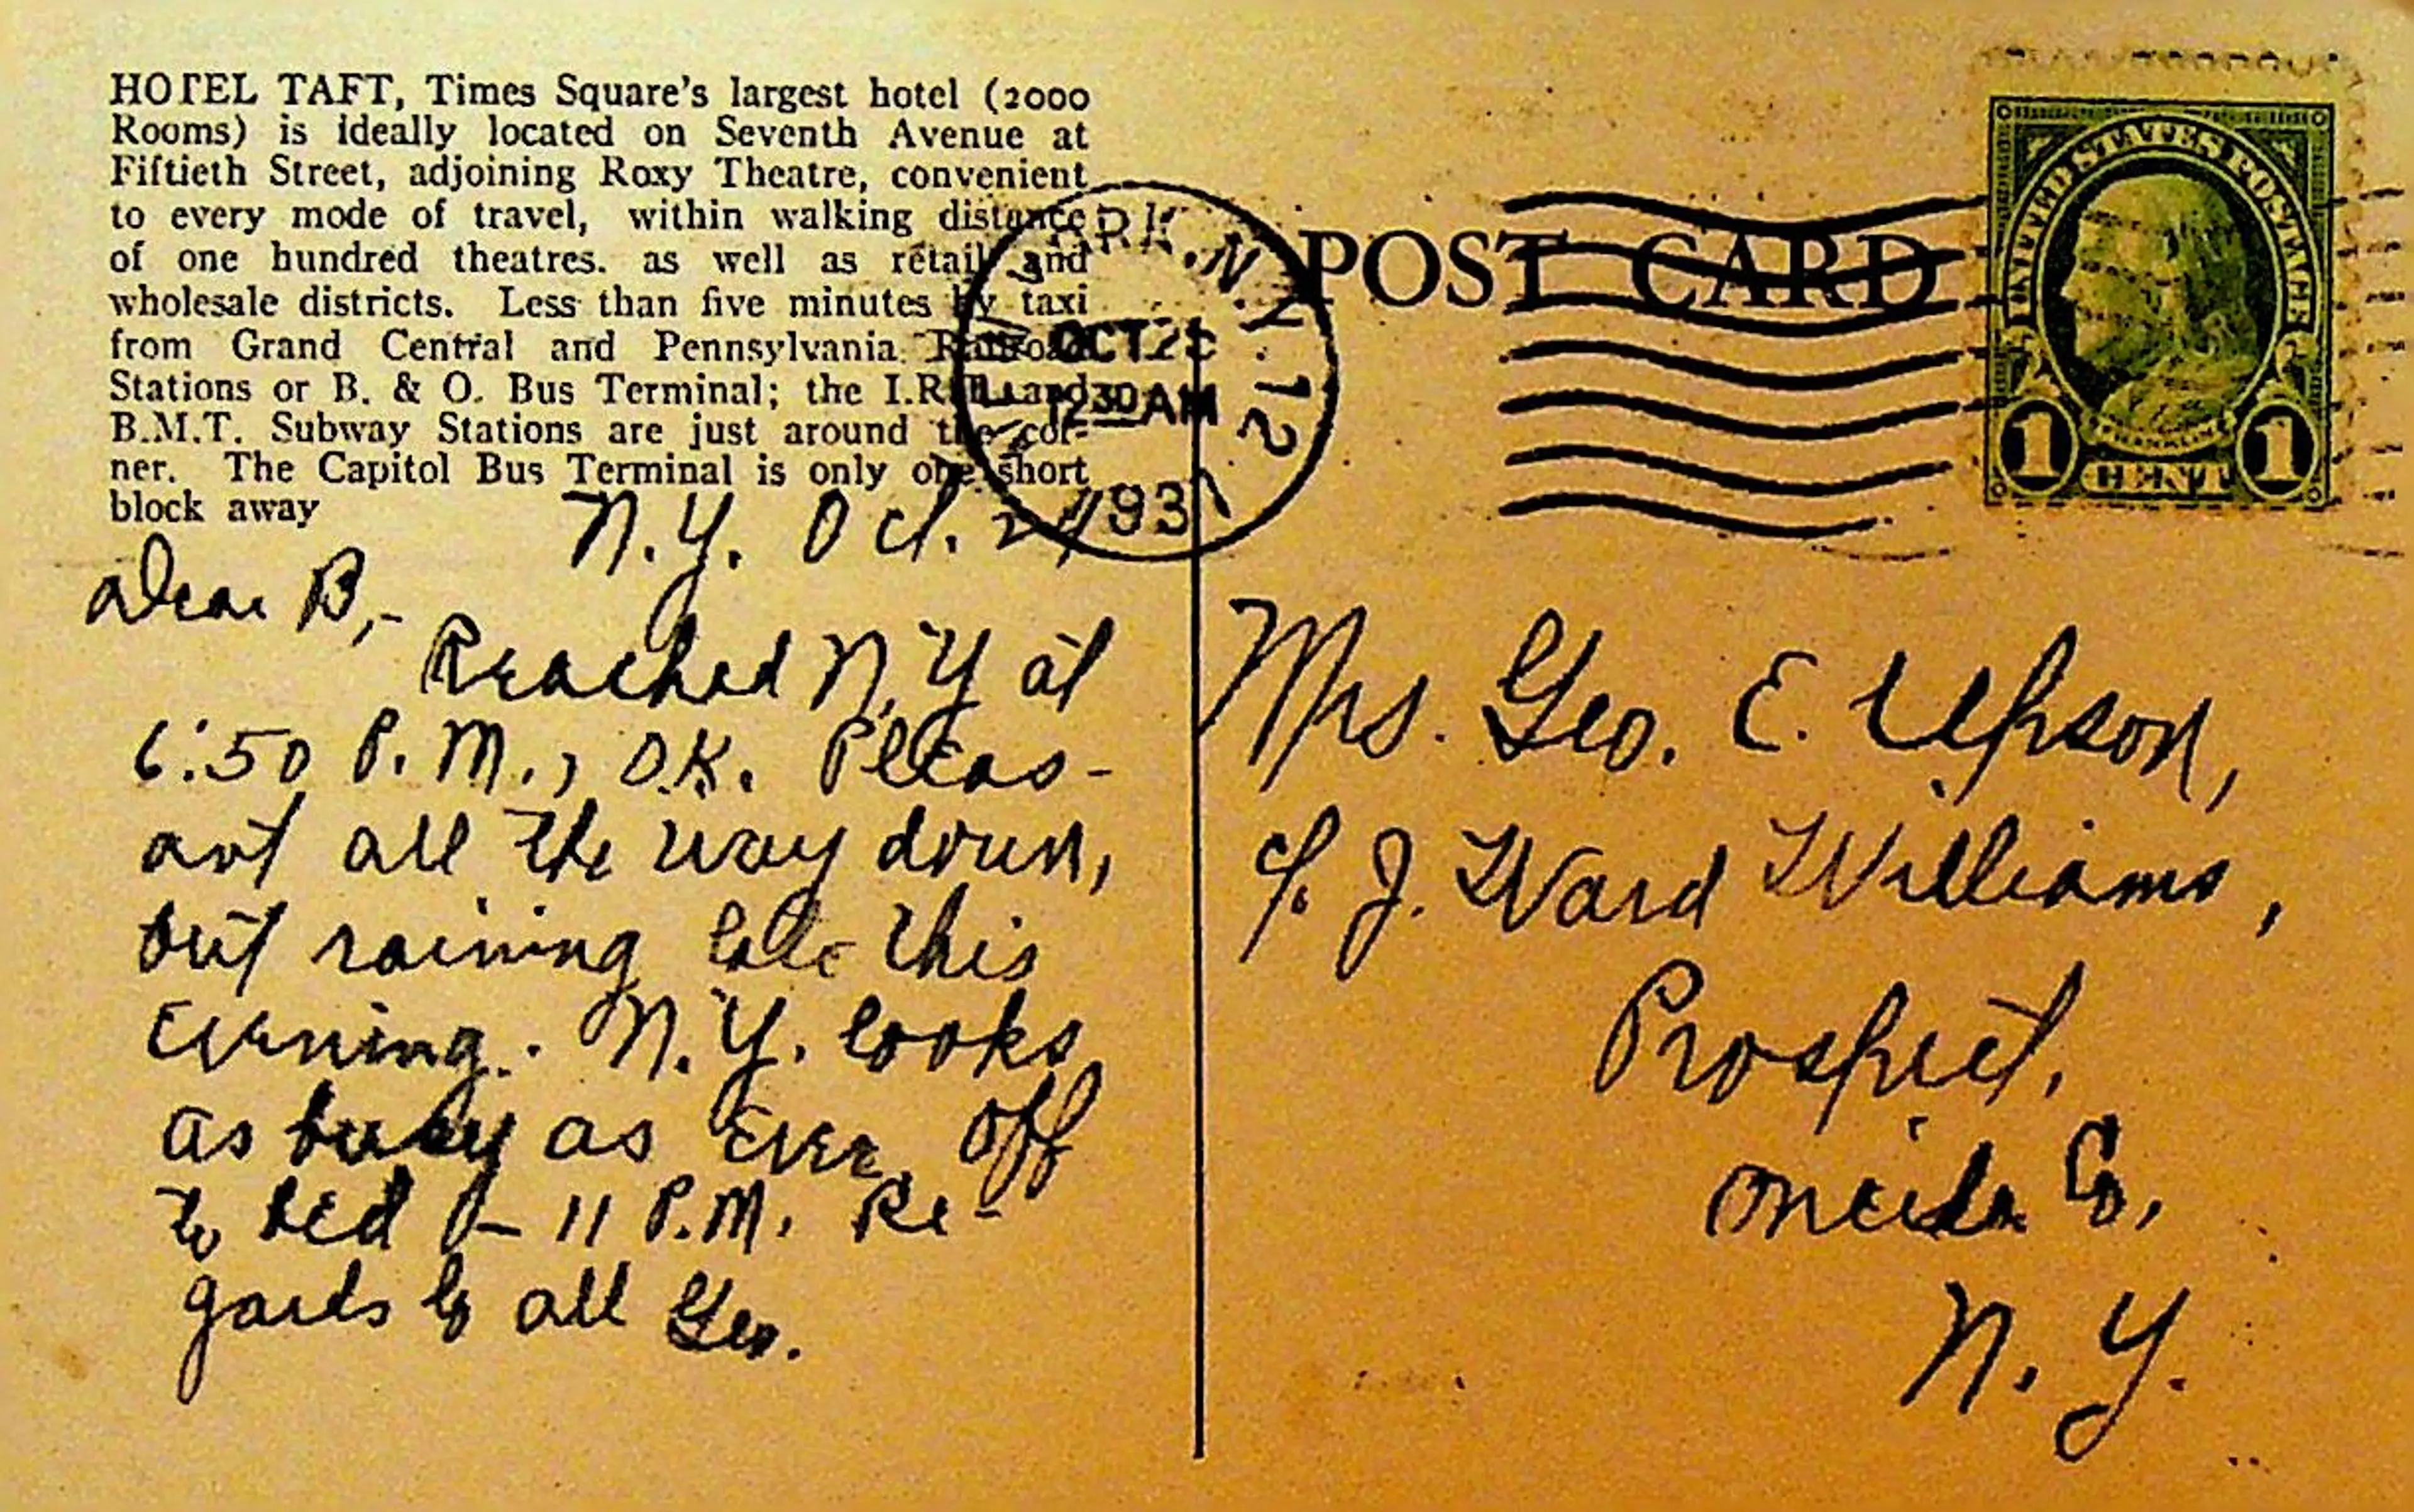 HOTEL TAFT, Times Square's largest hotel (2000
Rooms) is ideally located on Seventh Avenue at
Fiftieth Street, adjoining Roxy Theatre, convenient
to every mode of travel, within walking distance
of one hundred theatres. as well as retail and
wholesale districts. Less than five minutes by taxi
from Grand Central and Pennsylvania Railroad
Stations or B. & O. Bus Terminal; the I.R.T. and
B.M.T. Subway Stations are just around the cor-
ner. The Capitol Bus Terminal is only one short
block away
N.Y. Oct. 24
Dear B,-
Reached N.Y at
6:50 P.M., O.K. Pleas-
ant all the way down,
but raining late this
evening. N.Y. looks
as busy as ever. Off
to bed - 11 P.M. Re-
gards to all Geo.
N.Y. 12
OCT 25
12 30 AM
1931
POST CARD
UNITED STATES POSTAGE
FRANKLIN
1 CENT 1
Mrs. Geo. E. Upson,
c/. J. Ward Williams,
Prospect,
Oneida Co,
N. Y.